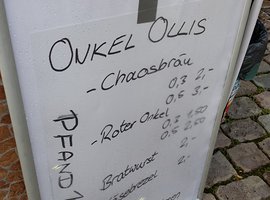 ONKEL OLLIS
- Chaosbräu
0,3 2,-
0,5 3,-
- Roter Onkel
0,3 1,50
0,5 2,50
Bratwurst 2,-
Käsebrezel 2,-
PFAND 1